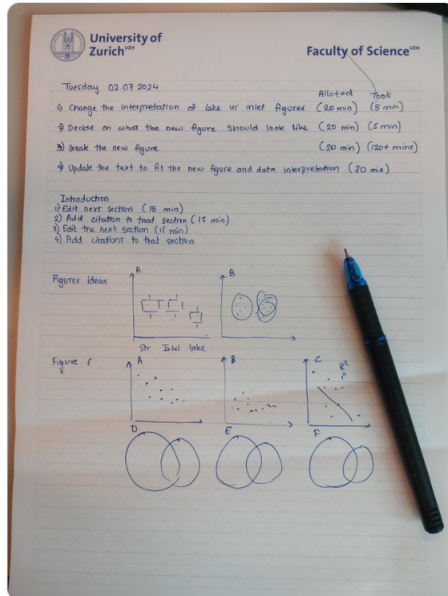 University of
Zurich UZH
Faculty of Science UZH
Tuesday 02.07.2024
Alloted Took
1) Change the interpretation of lake vr inlet figures (20 min) (5 min)
2) Decide on what the new figure should look like (20 min) (5 min)
3) Create the new figure (20 min) (120+ mins)
4) Update the text to fit the new figure and data interpretation (20 min)
Introduction
1) Edit next section (15 min)
2) Add citation to that section (15 min)
3) Edit the next section (15 min)
4) Add citations to that section
Figures ideas A B
Str Inlet lake
Figure A B C
R²
D E F